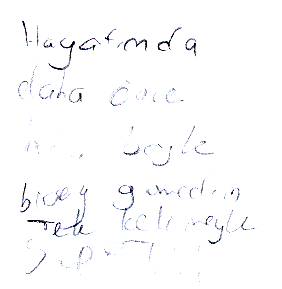 Hayatımda
daha önce
böyle
bişey görmedim
Tek kelimeyle